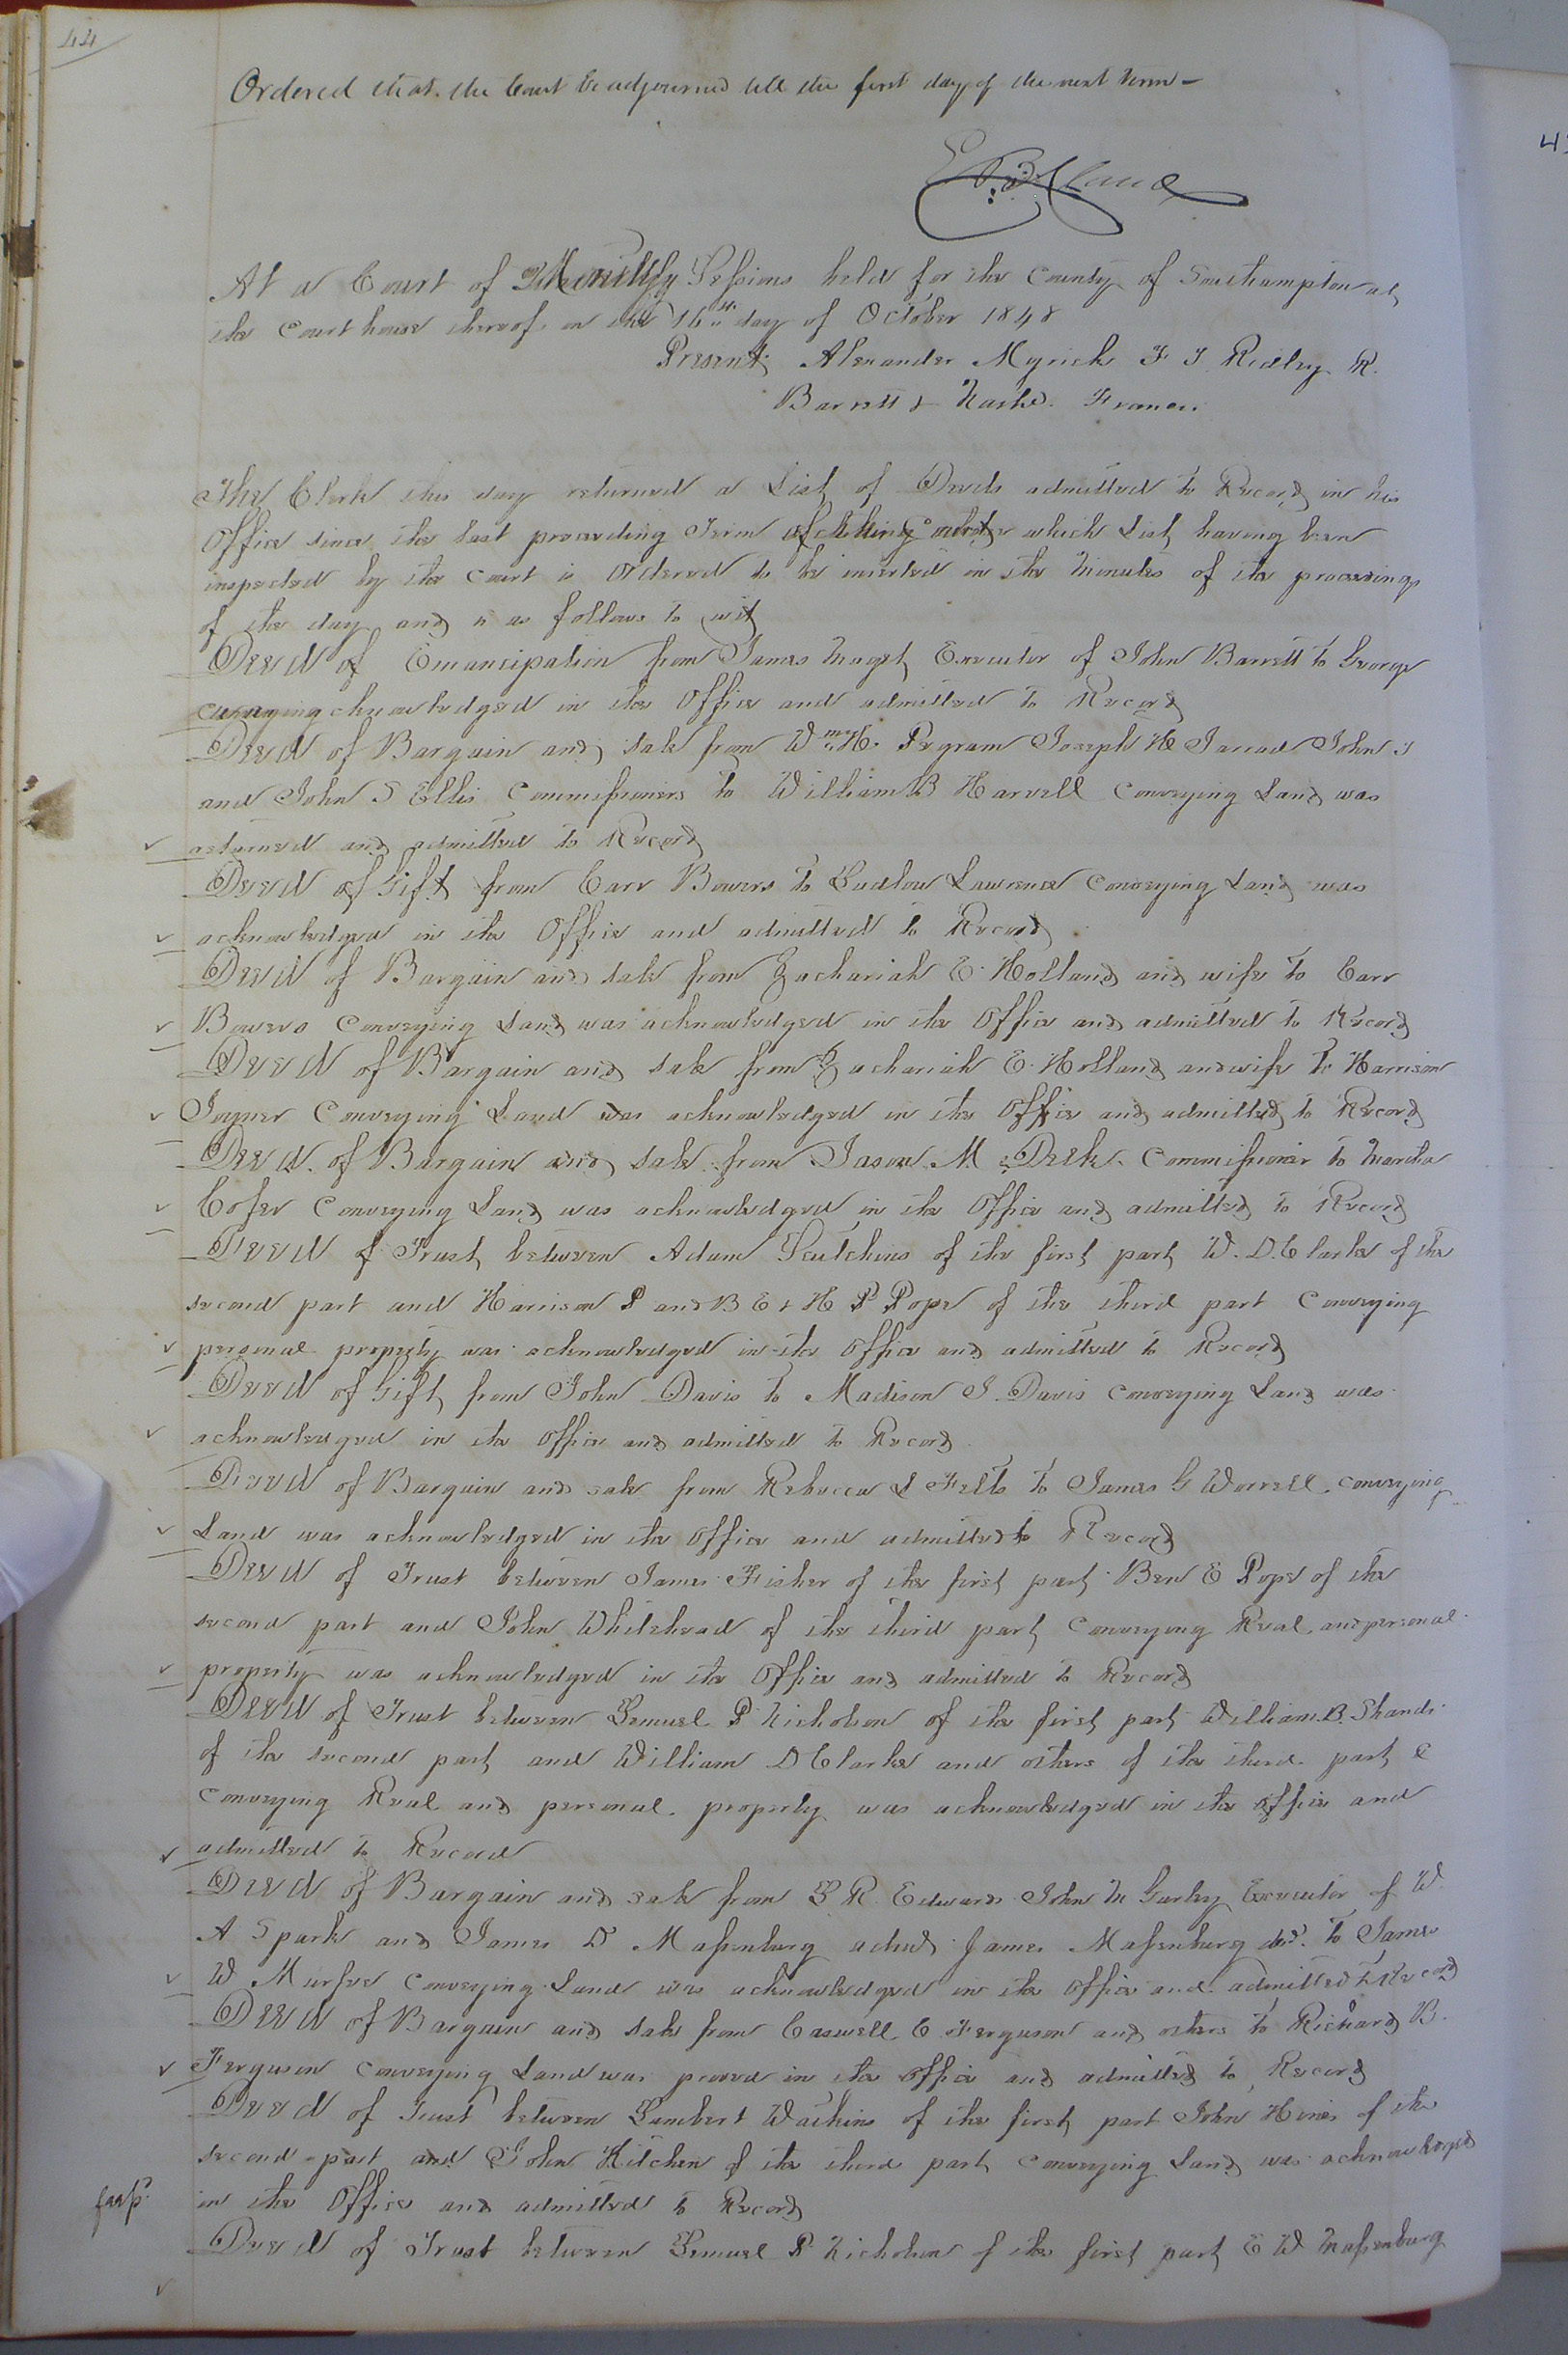 44
Ordered that the Court be adjourned till the first day of the next term -
At a Court of Monthly Sessions held for the County of Southampton at
the Court house thereof on the 16th day of October 1848
Present Alexander Myrick F J Ridley R.
Barrett &
The Clerk this day returned a List of Deeds admitted to Record in his
Office since the last preceeding Term which List having been
inspected by the Court is Ordered to be inserted in the Minutes of the proceedings
of the day and is as follows to wit
Deed of Emancipation from James Maget Executor of John Barrett to George
acknowledged in the Office and admitted to Record
Deed of Bargain and sale from Wm H. Pegram Joseph H Jarrad John J
and John S Ellis Commissioners to William B Harvell Conveying Land was
returned and admitted to Record
Deed of Gift from Carr Bowers to Ludlow Lawrence Conveying Land was
acknowledged in the Office and admitted to Record
Deed of Bargain and sale from Zachariah E. Holland and wife to Carr
Bowers Conveying Land was acknowledged in the Office and admitted to Record
Deed of Bargain and sale from Zachariah E. Holland and wife to Harrison
Joyner Conveying Land was acknowledged in the Office and admitted to Record
Deed of Bargain and sale from Jason M Deek Commissioner to Martha
Cofer Conveying Land was acknowledged in the Office and admitted to Record
Deed of Trust between Adam Scutchins of the first part W. D. Clarke of the
second part and Harrison P and B E & H P Pope of the third part Conveying
personal property was acknowledged in the Office and admitted to Record
Deed of Gift from John Davis to Madison J. Davis conveying Land was
acknowledged in the Office and admitted to Record
Deed of Bargain and sale from Rebecca L Felts to James G Worrell conveying
Land was acknowledged in the Office and admitted to Record
Deed of Trust between James Fisher of the first part Ben E Pope of the
second part and John Whitehead of the third part Conveying Real and personal
property was acknowledged in the Office and admitted to Record
Deed of Trust between Lemuel P Nicholson of the first part William B. Shands
of the second part and William D Clarke and others of the third part &
Conveying Real and personal property was acknowledged in the Office and
admitted to Record
Deed of Bargain and sale from L R Edwards John M Gurley Executor of W
A Spark and James D Massenburg James Massenburg decd. to James
W Murfee Conveying Land was acknowledged in the Office and admitted to Record
Deed of Bargain and sale from Caswell C Ferguson and others to Richard B.
Ferguson Conveying Land was proved in the Office and admitted to Record
Deed of Trust between Lambert Watkins of the first part John Hines of the
second part and John Kitchen of the third part Conveying Land was acknowledged
in the Office and admitted to Record
Deed of Trust between Lemuel P Nicholson of the first part E W Massenburg